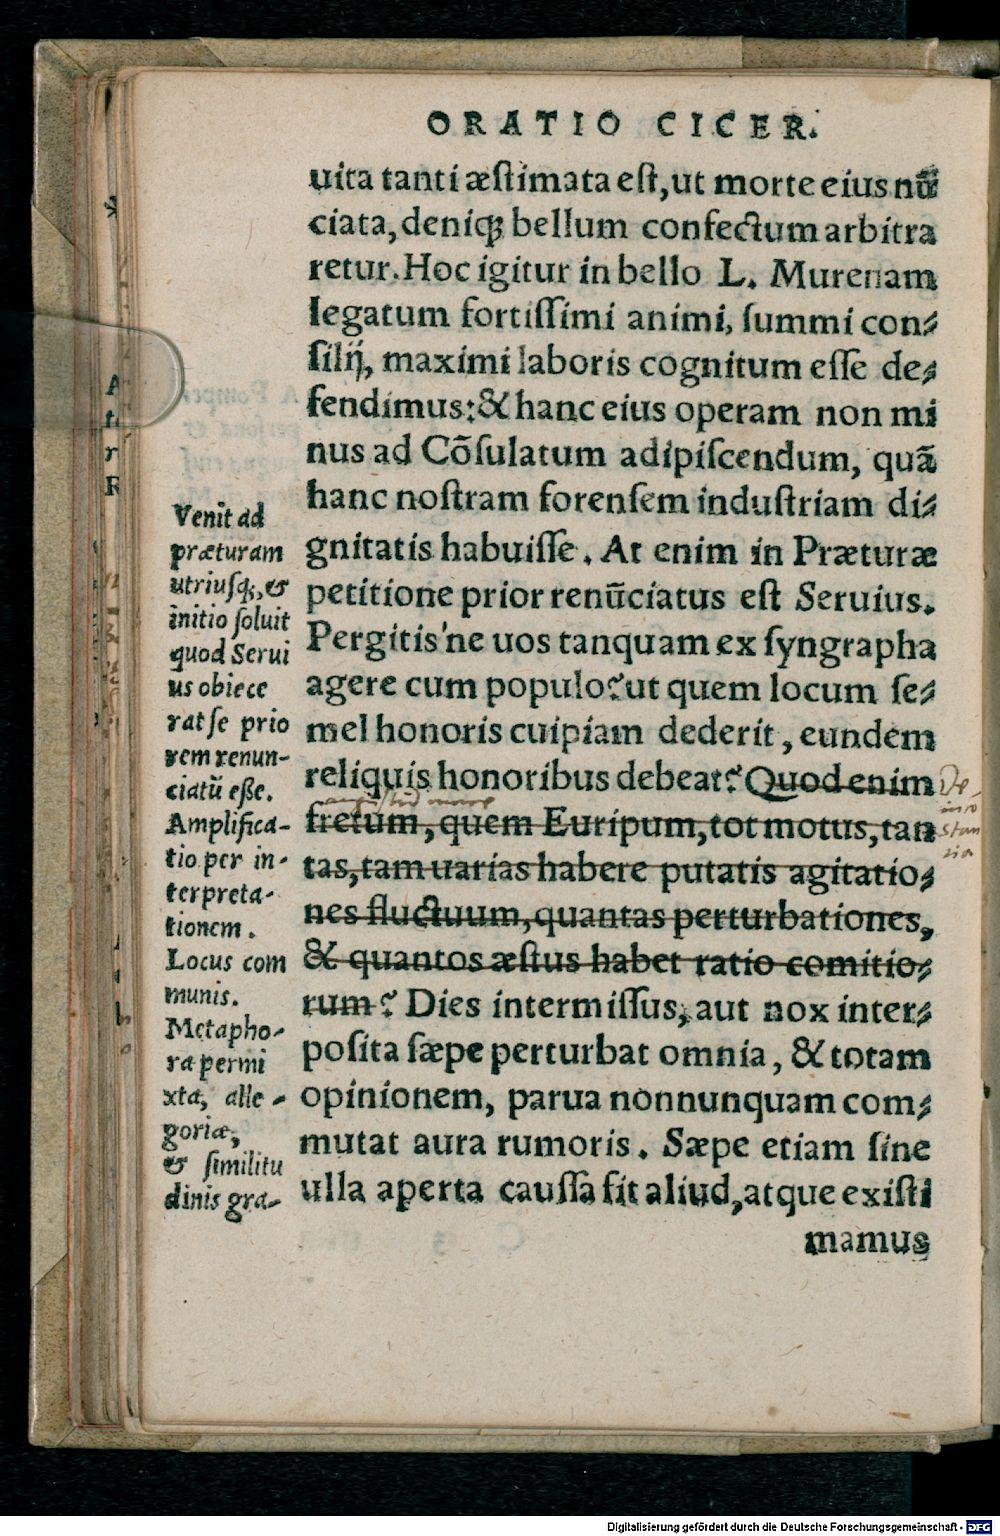 ORATIO CICER.
uita tanti æstimata est, ut morte eius nũ
ciata, deniq; bellum confectum arbitra
retur. Hoc igitur in bello L. Murenam
legatum fortissimi animi, summi con-
silij, maximi laboris cognitum esse de-
fendimus: & hanc eius operam non mi
nus ad Cõsulatum adipiscendum, quã
hanc nostram forensem industriam di-
gnitatis habuisse. At enim in Præturæ
petitione prior renũciatus est Seruius.
Pergitis'ne uos tanquam ex syngrapha
agere cum populo? ut quem locum se-
mel honoris cuipiam dederit, eundem
reliquis honoribus debeat? Quod enim
fretum, quem Euripum, tot motus, tan
tas, tam uarias habere putatis agitatio-
nes fluctuum, quantas perturbationes,
& quantos æstus habet ratio comitio-
rum? Dies intermissus, aut nox inter-
posita sæpe perturbat omnia, & totam
opinionem, parua nonnunquam com-
mutat aura rumoris. Sæpe etiam sine
ulla aperta caussa fit aliud, atque existi
mamus
Venit ad
præturam
utriusq;, &
initio soluit
quod Serui
us obiece
rat se prio
rem renun-
ciatũ esse.
Amplifica-
tio per in-
terpreta-
tionem.
Locus com
munis.
Metapho-
ra permi
xta, alle-
goriæ,
& similitu
dinis gra-
De
inco
stan
tia
Digitalisierung gefördert durch die Deutsche Forschungsgemeinschaft - DFG